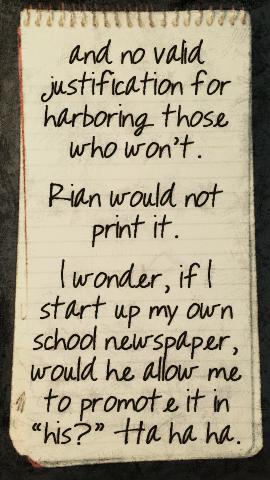 and no valid
justification for
harboring those
who won't.
Rian would not
print it.
I wonder, if I
start up my own
school newspaper,
would he allow me
to promote it in
"his?" Ha ha ha.